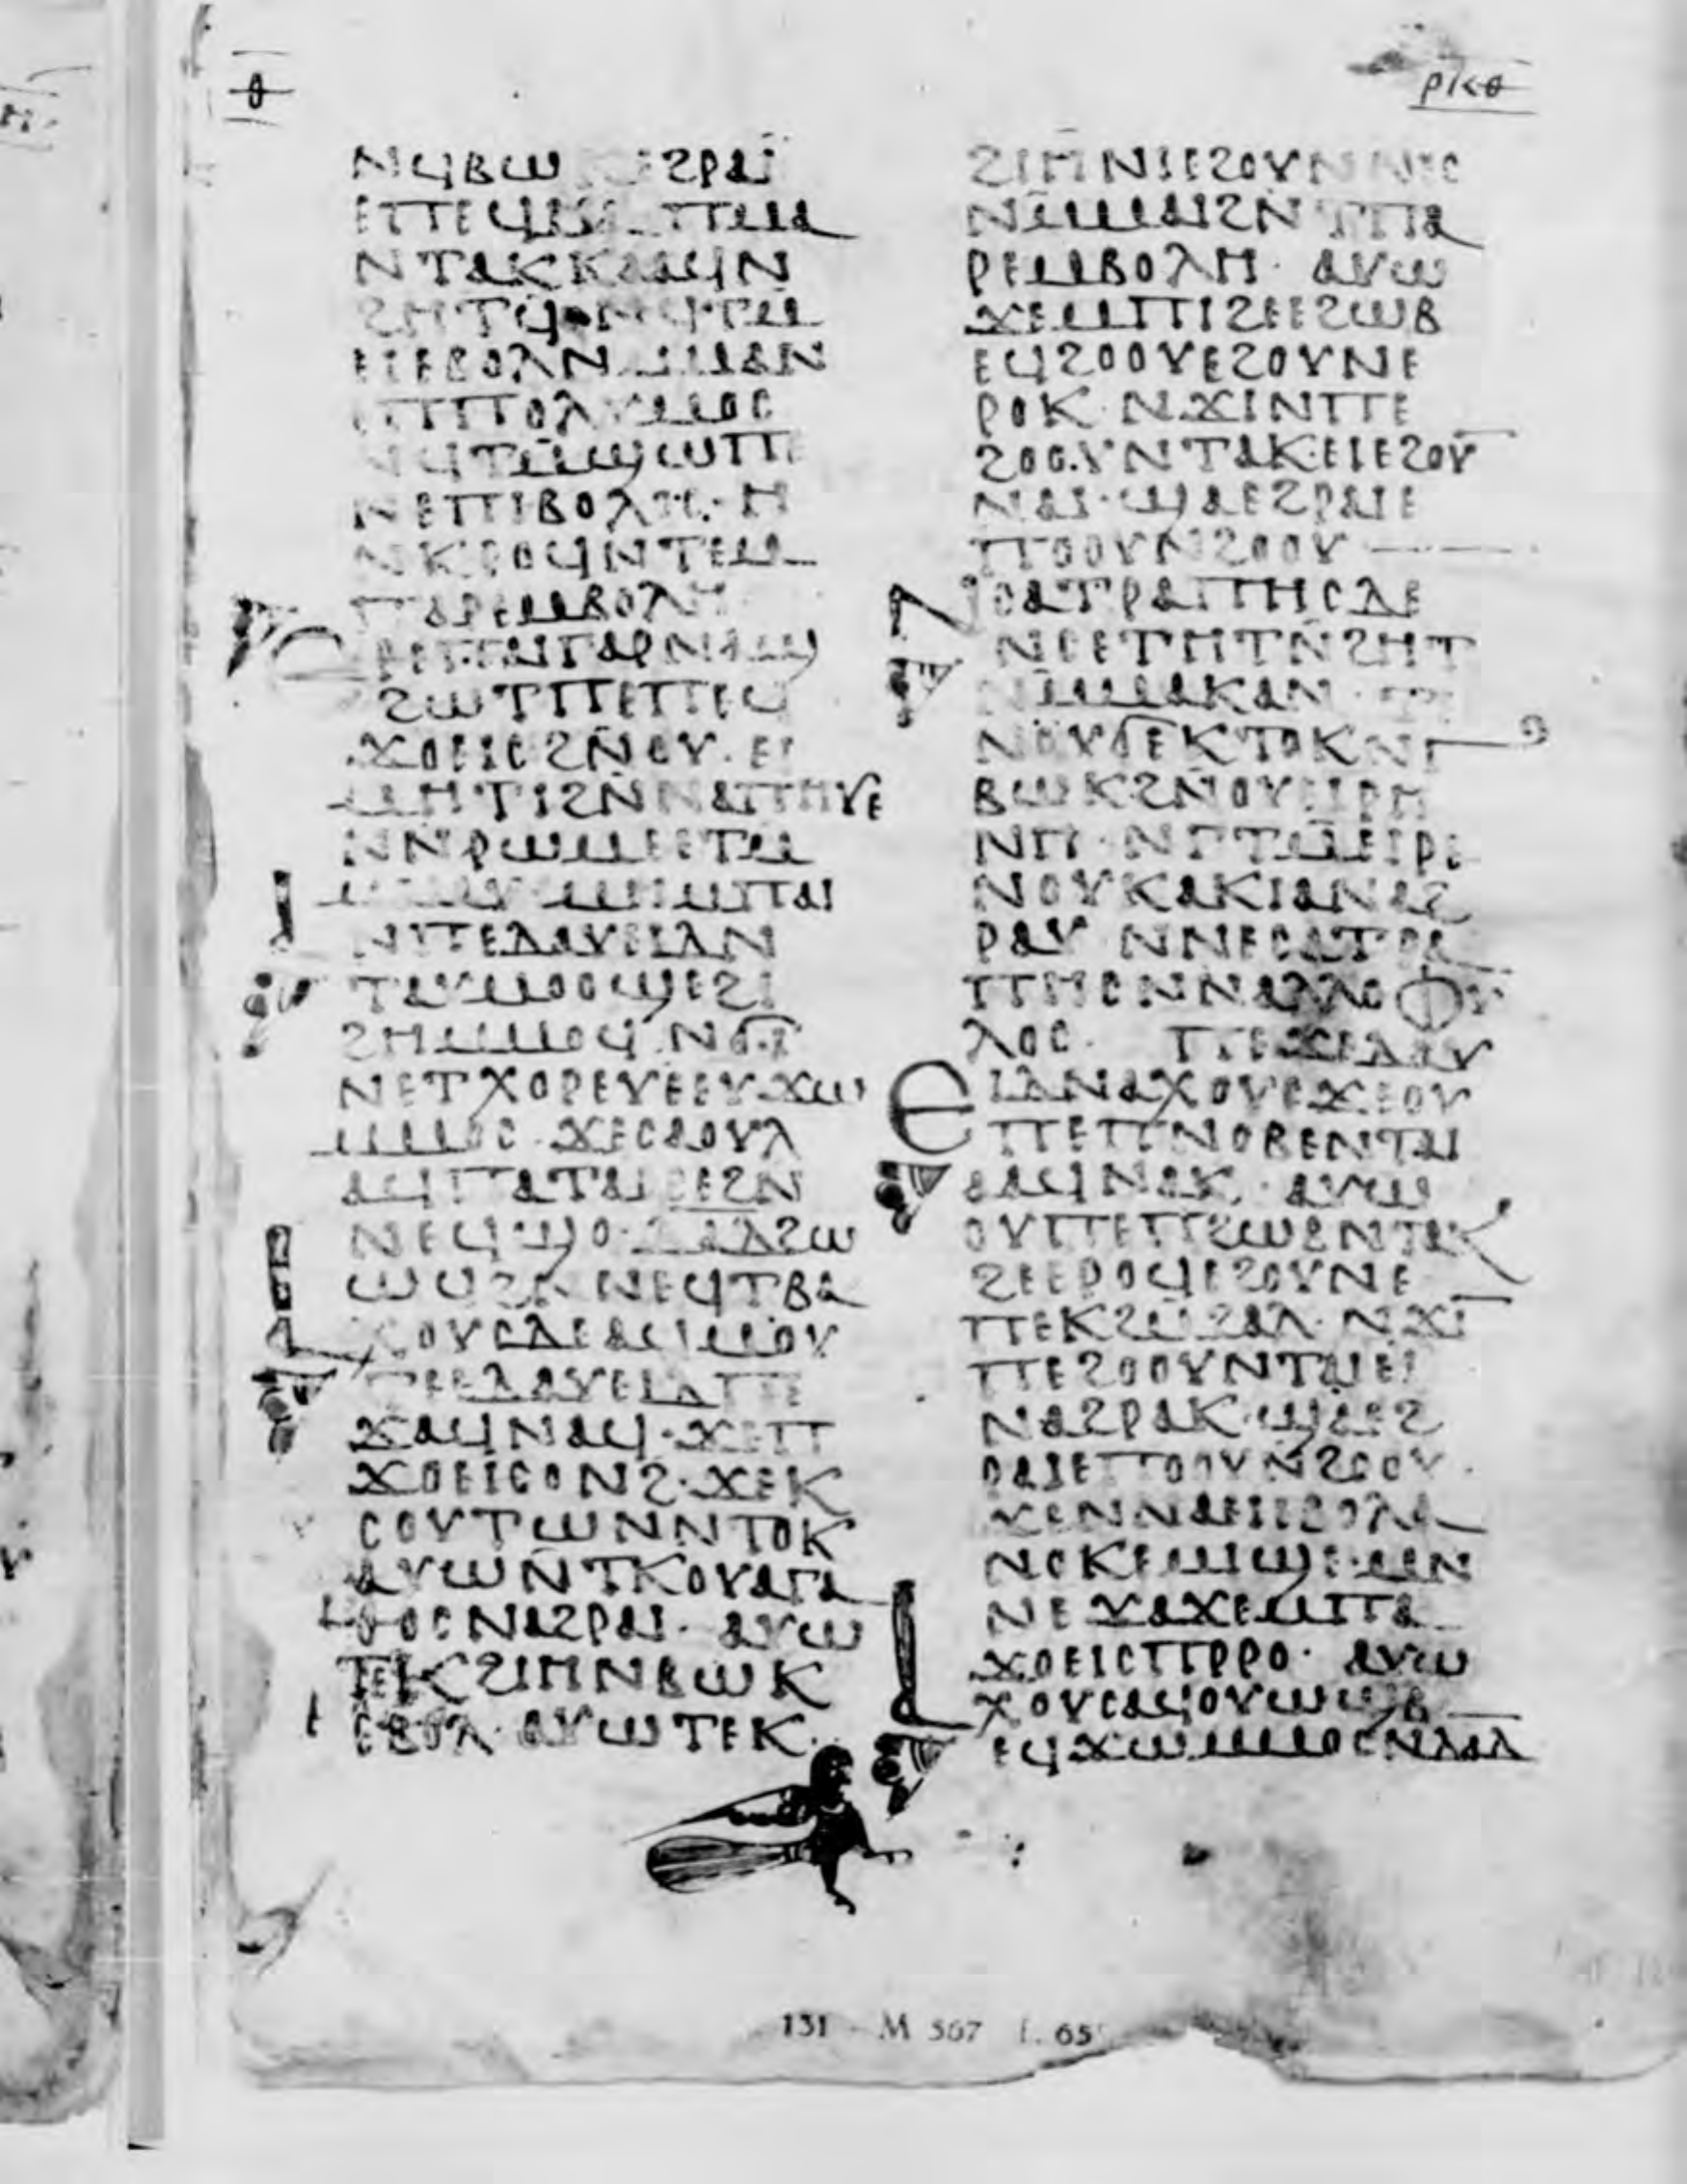 ⲑ
ⲣⲕⲑ
ⲛϥⲃⲱ ⲉϩⲣⲁⲓ̈
ⲉⲡⲉϥⲙⲁ ⲡⲙⲁ
ⲛⲧⲁⲕⲕⲁⲁϥⲛ
ϩⲏⲧϥ· ⲛϥⲧⲙ
ⲉⲓⲉⲃⲟⲗⲛⲙⲙⲁⲛ
ⲉⲡⲡⲟⲗⲩⲙⲟⲥ
ⲛϥⲧⲙ̄ϣⲱⲡⲉ
ⲛⲉⲡⲓⲃⲟⲗⲏ· ⲏ
ⲛⲕⲣⲟϥⲛⲧⲉⲙ
ⲡⲁⲣⲉⲙⲃⲟⲗⲏ
ⲉⲣⲉⲡⲁⲓⲅⲁⲣⲛⲁϣ
ϩⲱⲧⲡⲉⲡⲉϥ
ϫⲟⲉⲓⲥϩⲛ̄ⲟⲩ· ⲉⲓ
ⲙⲏⲧⲓϩⲛ̄ⲛⲁⲡⲏⲩⲉ
ⲛⲛⲣⲱⲙⲉⲉⲧⲙ
ⲙⲁⲩ ⲙⲏⲙⲡⲁⲓ
ⲁⲛⲡⲉⲇⲁⲩⲉⲓⲇⲛ
ⲧⲁⲩⲙⲟⲟϣⲉϩⲓ
ϩⲏⲙⲙⲟϥ ⲛϭⲓ
ⲛⲉⲧⲭⲟⲣⲉⲩⲉⲉⲩϫⲱ
ⲙⲙⲟⲥ· ϫⲉⲥⲁⲟⲩⲗ
ⲁϥⲡⲁⲧⲁⲥⲥⲉϩⲛ
ⲛⲉϥϣⲟ· ⲇⲁⲇϩⲱ
ⲱϥϩⲛ ⲛⲉϥⲧⲃⲁ
ⲁⲭⲟⲩⲥⲇⲉⲁϥⲙⲟⲩ
ⲧⲉⲉⲇⲁⲩⲉⲓⲇⲡⲉ
ϫⲁϥⲛⲁϥ· ϫⲉⲡ
ϫⲟⲉⲓⲥⲟⲛϩ· ϫⲉⲕ
ⲥⲟⲩⲧⲱⲛⲛⲧⲟⲕ
ⲁⲩⲱⲛ̄ⲧⲕⲟⲩⲁⲅⲁ
ⲑⲟⲥⲛⲁϩⲣⲁⲓ· ⲁⲩⲱ
ⲧⲉⲕϩⲓⲏⲛⲃⲱⲕ
ⲉⲃⲟⲗ· ⲁⲩⲱⲧⲉⲕ
ϩⲓⲏⲛⲓⲉϩⲟⲩⲛ
ⲛⲙ̄ⲙⲁⲓϩⲛ̄ ⲧⲡⲁ
ⲣⲉⲙⲃⲟⲗⲏ· ⲁⲩⲱ
ϫⲉⲙⲡⲓϩⲉⲉϩⲱⲃ
ⲉϥϩⲟⲟⲩⲉϩⲟⲩⲛⲉ
ⲣⲟⲕ· ⲛϫⲓⲛⲡⲉ
ϩⲟⲟⲩⲛⲧⲁⲕⲉⲓⲉϩⲟⲩ
ⲛⲁⲓ· ϣⲁⲉϩⲣⲁⲓⲉ
ⲡⲟⲟⲩⲛϩⲟⲟⲩ
ⲛ̄ⲥⲁⲧⲣⲁⲡⲏⲥⲇⲉ
ⲛⲥⲉⲧⲏⲧⲛ̄ϩⲏⲧ
ⲛⲙ̄ⲙⲁⲕⲁⲛ· ⲧⲉ
ⲛⲟⲩϭⲉⲕⲧⲟⲕⲛⲅ
ⲃⲱⲕϩⲛⲟⲩⲉⲓⲣⲏ
ⲛⲏ· ⲛⲅⲧⲙ̄ⲉⲓⲣⲉ
ⲛⲟⲩⲕⲁⲕⲓⲁⲛⲁϩ
ⲣⲁⲩ ⲛⲛⲉⲥⲁⲧⲣⲁ
ⲡⲏⲥⲛⲛⲁⲗⲗⲟⲫⲩ
ⲗⲟⲥ· ⲡⲉϫⲉⲇⲁⲩ
ⲉⲓⲇⲛⲁⲭⲟⲩⲥϫⲉⲟⲩ
ⲡⲉⲡⲛⲟⲃⲉⲛⲧⲁⲓ
ⲁⲁϥⲛⲁⲕ· ⲁⲩⲱ
ⲟⲩⲡⲉⲡϩⲱⲃⲛⲧⲁⲕ
ϩⲉⲉⲣⲟϥⲉϩⲟⲩⲛⲉ
ⲡⲉⲕϩⲙ̄ϩⲁⲗ· ⲛϫⲓ
ⲡⲉϩⲟⲟⲩⲛⲧⲁⲓⲉⲓ
ⲛⲁϩⲣⲁⲕ· ϣⲁⲉϩ
ⲣⲁⲓⲉⲡⲟⲟⲩⲛ̄ϩⲟⲟⲩ·
ϫⲉⲛⲛⲁⲉⲓⲉⲃⲟⲗⲁ
ⲛⲟⲕⲉⲙⲓϣⲉ· ⲙⲛ
ⲛⲉϫⲁϫⲉⲙⲡⲁ
ϫⲟⲉⲓⲥⲡⲣⲣⲟ· ⲁⲩⲱ
ⲁⲭⲟⲩⲥⲁϥⲟⲩⲱϣⲃ
ⲉϥϫⲱⲙⲙⲟⲥⲛⲇⲁⲇ
131 - M 567 f. 65